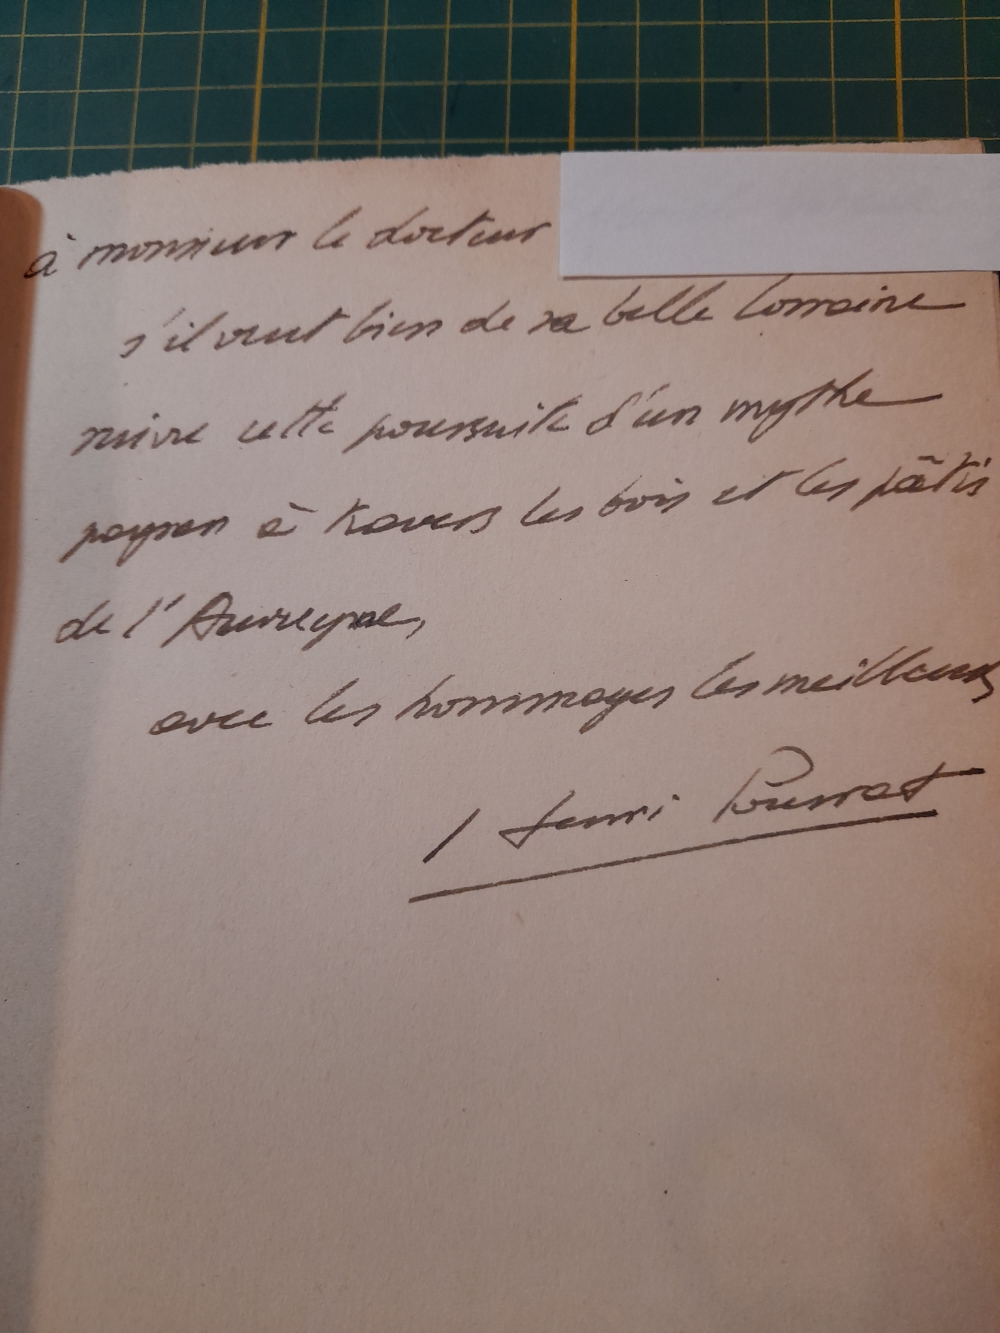 à monsieur le docteur
s'il veut bien de sa belle Lorraine
suivre cette poursuite d'un mythe
paysan à travers les bois et les pâtis
de l'Auvergne,
avec les hommages les meilleurs
Henri Pourrat